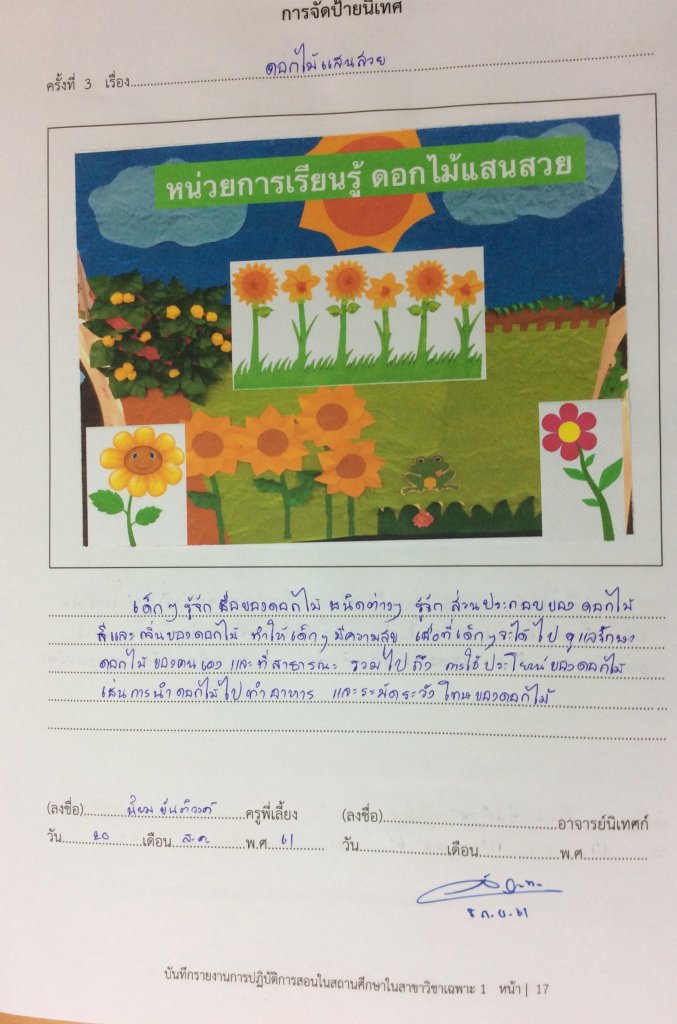 การจัดป้ายนิเทศ
ครั้งที่ 3 เรื่อง ดอกไม้แสนสวย
หน่วยการเรียนรู้ ดอกไม้แสนสวย
เด็กๆ รู้จัก ชื่อของดอกไม้ ชนิดต่างๆ รู้จัก ส่วนประกอบ ของ ดอกไม้
สีและกลิ่นของดอกไม้ ทำให้เด็กๆ มีความสุข เพื่อที่เด็กๆ จะได้ ไป ดูแลรักษา
ดอกไม้ ของตนเอง และที่สาธารณะ รวมไปถึง การใช้ประโยชน์ของดอกไม้
เช่นการนำดอกไม้ไปทำอาหาร และระมัดระวัง โทษของดอกไม้
(ลงชื่อ) นิยม ครูพี่เลี้ยง (ลงชื่อ) อาจารย์นิเทศก์
วัน 20 เดือน ส.ค. พ.ศ. 61 วัน เดือน พ.ศ.
5 ก.ย. 61
บันทึกรายงานการปฏิบัติการสอนในสถานศึกษาในสาขาวิชาเฉพาะ 1 หน้า | 17